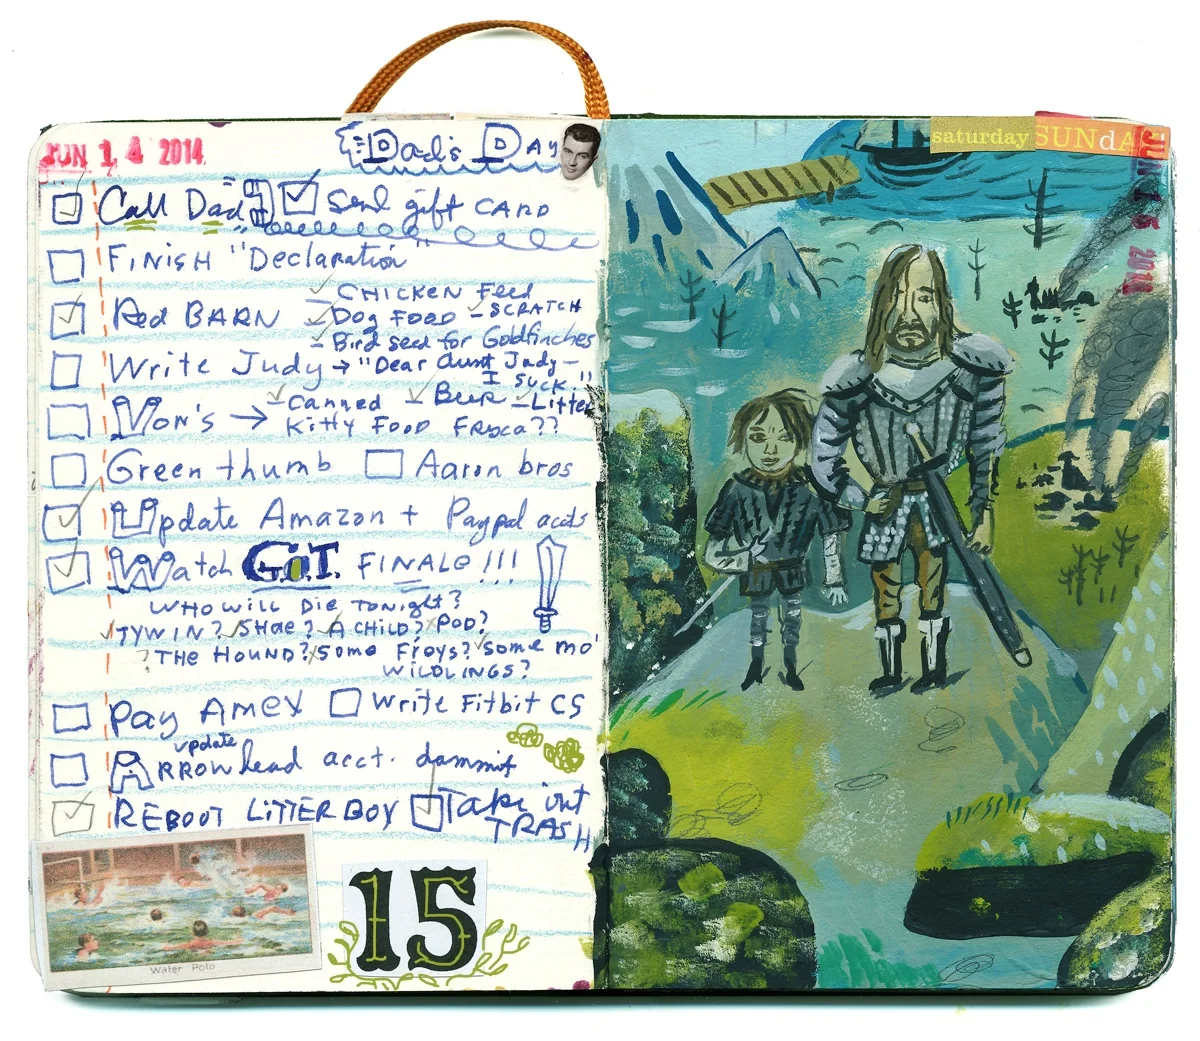 JUN 14 2014
Dad's Day
Call Dad Send gift CARD
Finish "Declaration"
CHICKEN Feed
Red BARN - Dog Food - SCRATCH
- Bird seed for Goldfinches
Write Judy → "Dear Aunt Judy —
I suck."
- Canned - Beer - Litter
Von's → Kitty Food Fresca??
Green thumb Aaron bros
Update Amazon + Paypal accts
Watch G.O.T. FINALE!!!
WHO WILL DIE TONIGHT?
TYWIN? SHAE? A CHILD? POD?
? THE HOUND? SOME FREYS? SOME MO'
WILDLINGS?
Pay AMEX Write Fitbit CS
update
ARROWhead acct. dammit
REBOOT LITTER BOY Take out
TRASH
Water Polo
15
saturday SUNdA
JUN 15 2014